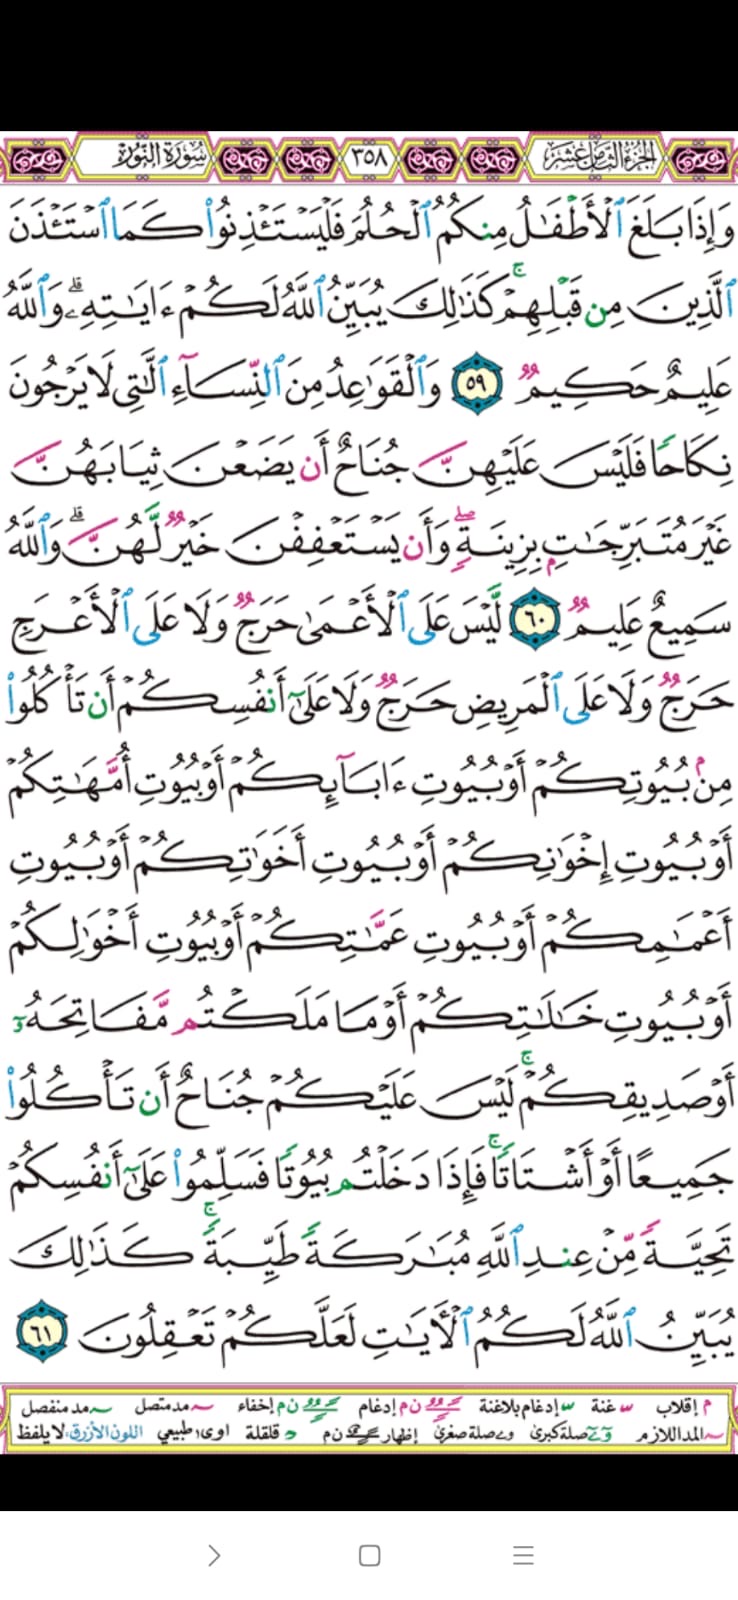 الجزء الثامن عشر ٣٥٨ سورة النور
وَإِذَا بَلَغَ ٱلْأَطْفَـٰلُ مِنكُمُ ٱلْحُلُمَ فَلْيَسْتَـْٔذِنُوا۟ كَمَا ٱسْتَـْٔذَنَ
ٱلَّذِينَ مِن قَبْلِهِمْ ۚ كَذَٰلِكَ يُبَيِّنُ ٱللَّهُ لَكُمْ ءَايَـٰتِهِۦ ۗ وَٱللَّهُ
عَلِيمٌ حَكِيمٌ ٥٩ وَٱلْقَوَٰعِدُ مِنَ ٱلنِّسَآءِ ٱلَّـٰتِى لَا يَرْجُونَ
نِكَاحًا فَلَيْسَ عَلَيْهِنَّ جُنَاحٌ أَن يَضَعْنَ ثِيَابَهُنَّ
غَيْرَ مُتَبَرِّجَـٰتٍۭ بِزِينَةٍ ۖ وَأَن يَسْتَعْفِفْنَ خَيْرٌ لَّهُنَّ ۗ وَٱللَّهُ
سَمِيعٌ عَلِيمٌ ٦٠ لَّيْسَ عَلَى ٱلْأَعْمَىٰ حَرَجٌ وَلَا عَلَى ٱلْأَعْرَجِ
حَرَجٌ وَلَا عَلَى ٱلْمَرِيضِ حَرَجٌ وَلَا عَلَىٰٓ أَنفُسِكُمْ أَن تَأْكُلُوا۟
مِنۢ بُيُوتِكُمْ أَوْ بُيُوتِ ءَابَآئِكُمْ أَوْ بُيُوتِ أُمَّهَـٰتِكُمْ
أَوْ بُيُوتِ إِخْوَٰنِكُمْ أَوْ بُيُوتِ أَخَوَٰتِكُمْ أَوْ بُيُوتِ
أَعْمَـٰمِكُمْ أَوْ بُيُوتِ عَمَّـٰتِكُمْ أَوْ بُيُوتِ أَخْوَٰلِكُمْ
أَوْ بُيُوتِ خَـٰلَـٰتِكُمْ أَوْ مَا مَلَكْتُم مَّفَاتِحَهُۥٓ
أَوْ صَدِيقِكُمْ ۚ لَيْسَ عَلَيْكُمْ جُنَاحٌ أَن تَأْكُلُوا۟
جَمِيعًا أَوْ أَشْتَاتًا ۚ فَإِذَا دَخَلْتُم بُيُوتًا فَسَلِّمُوا۟ عَلَىٰٓ أَنفُسِكُمْ
تَحِيَّةً مِّنْ عِندِ ٱللَّهِ مُبَـٰرَكَةً طَيِّبَةً ۚ كَذَٰلِكَ
يُبَيِّنُ ٱللَّهُ لَكُمُ ٱلْـَٔايَـٰتِ لَعَلَّكُمْ تَعْقِلُونَ ٦١
م إقلاب غنة إدغام بلاغنة ن م إدغام ن م إخفاء مد متصل مد منفصل
المد اللازم صلة كبرى صلة صغرى إظهار ن م قلقلة اوى طبيعي اللون الأزرق: لا يلفظ